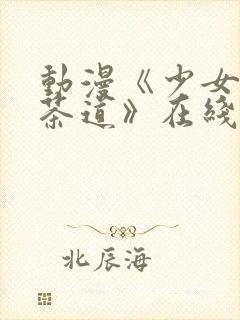 動漫《少女
茶道》在綫
北辰海